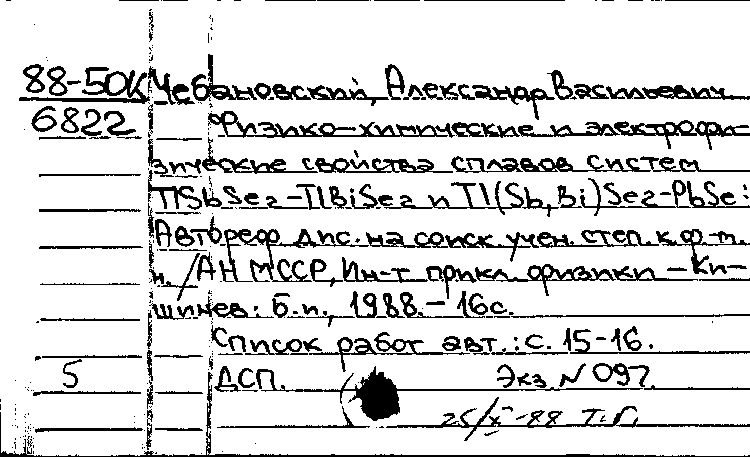 88-50К Чебановский, Александр Васильевич
6822 Физико-химические и электрофи-
зические свойства сплавов систем
TlSbSe2-TlBiSe2 и Tl(Sb,Bi)Se2-PbSe:
Автореф дис. на соиск. учен. степ. к.ф-м.
н. /АН МССР, Ин-т прикл. физики - Ки-
шинев: Б.и., 1988. - 16с.
Список работ авт.: с. 15-16.
5 ДСП. Экз N 097.
25/X-88 Т.Г.